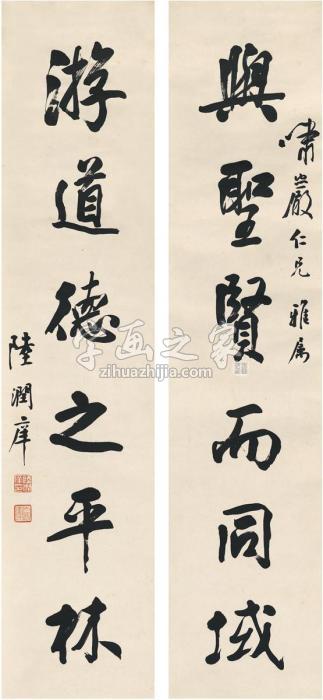 與聖賢而同域
嘯巖仁兄 雅屬
游道德之平林
陸潤庠
字画之家
zihuazhijia.com